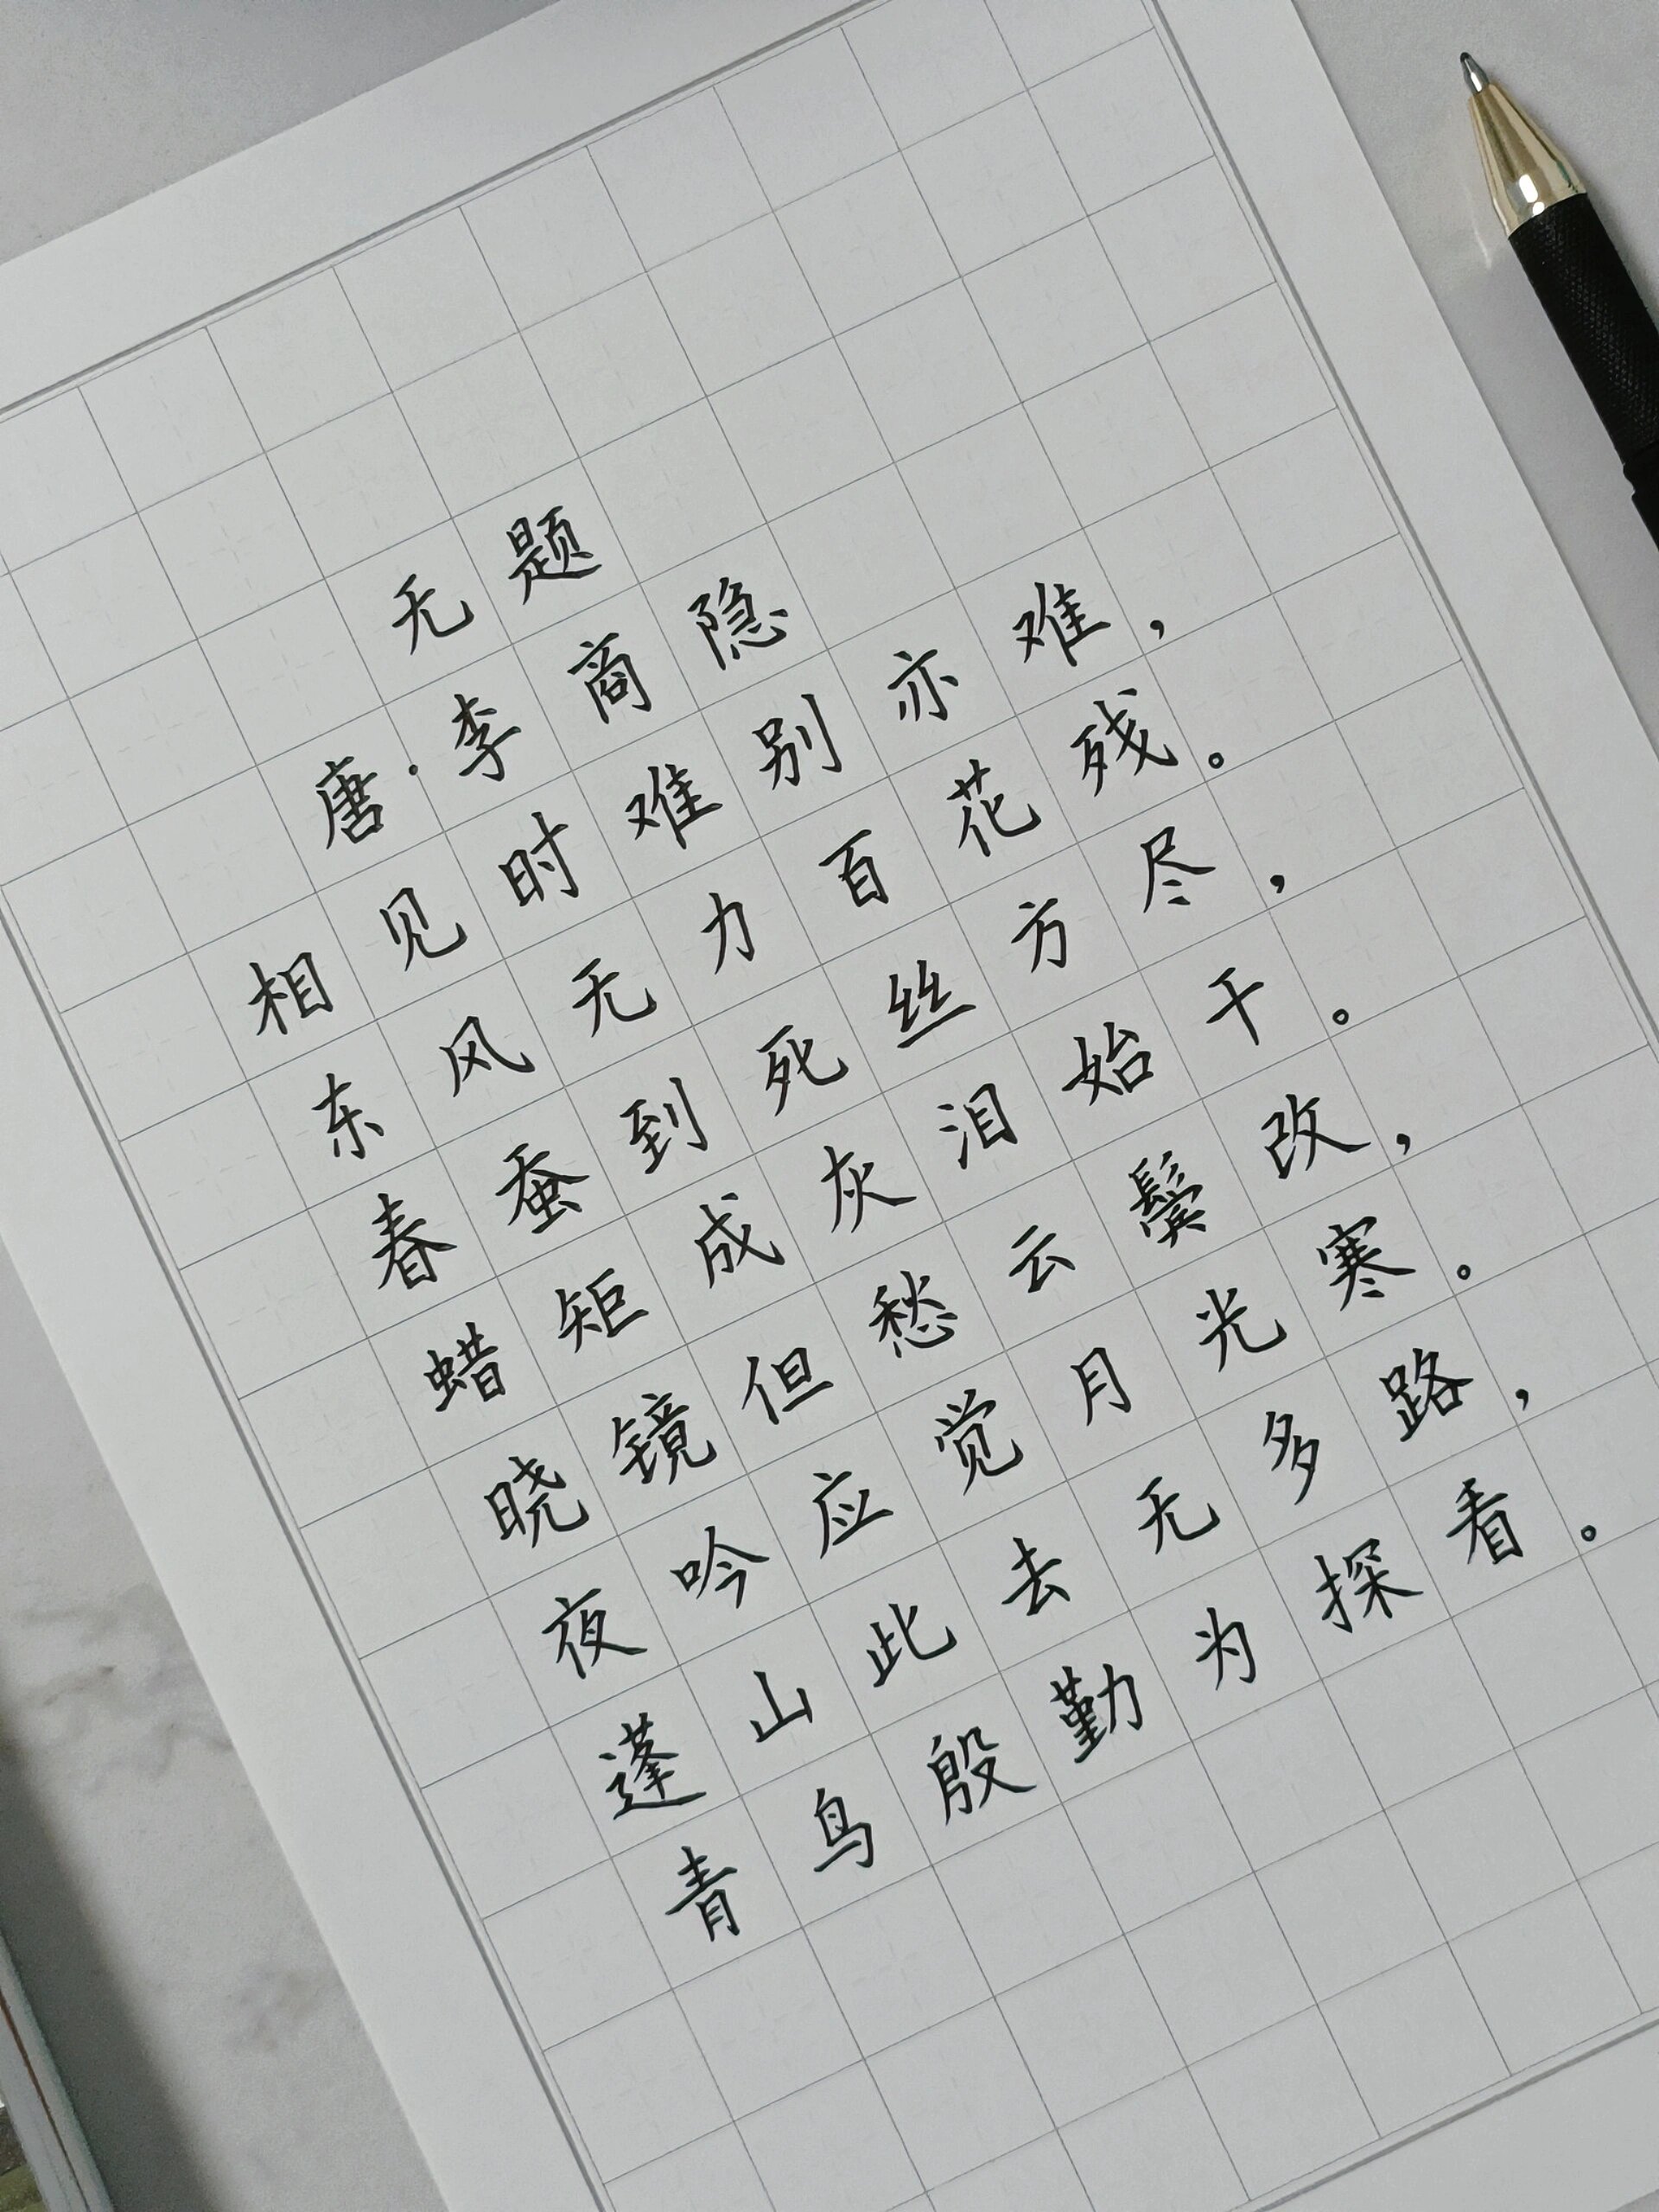 无题
唐·李商隐
相见时难别亦难，
东风无力百花残。
春蚕到死丝方尽，
蜡矩成灰泪始干。
晓镜但愁云鬓改，
夜吟应觉月光寒。
蓬山此去无多路，
青鸟殷勤为探看。